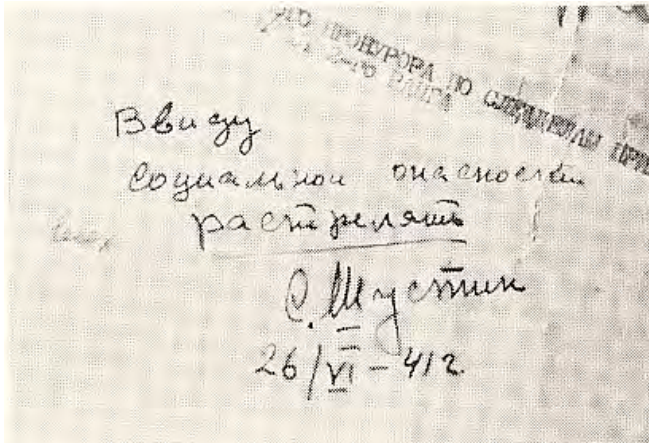 ПРОКУРОРА ПО СЛЕДДЕЛАМ
2-го РАНГА
Ввиду
социальной опасности
растрелять
С. Шустин
26/VI – 41 г.